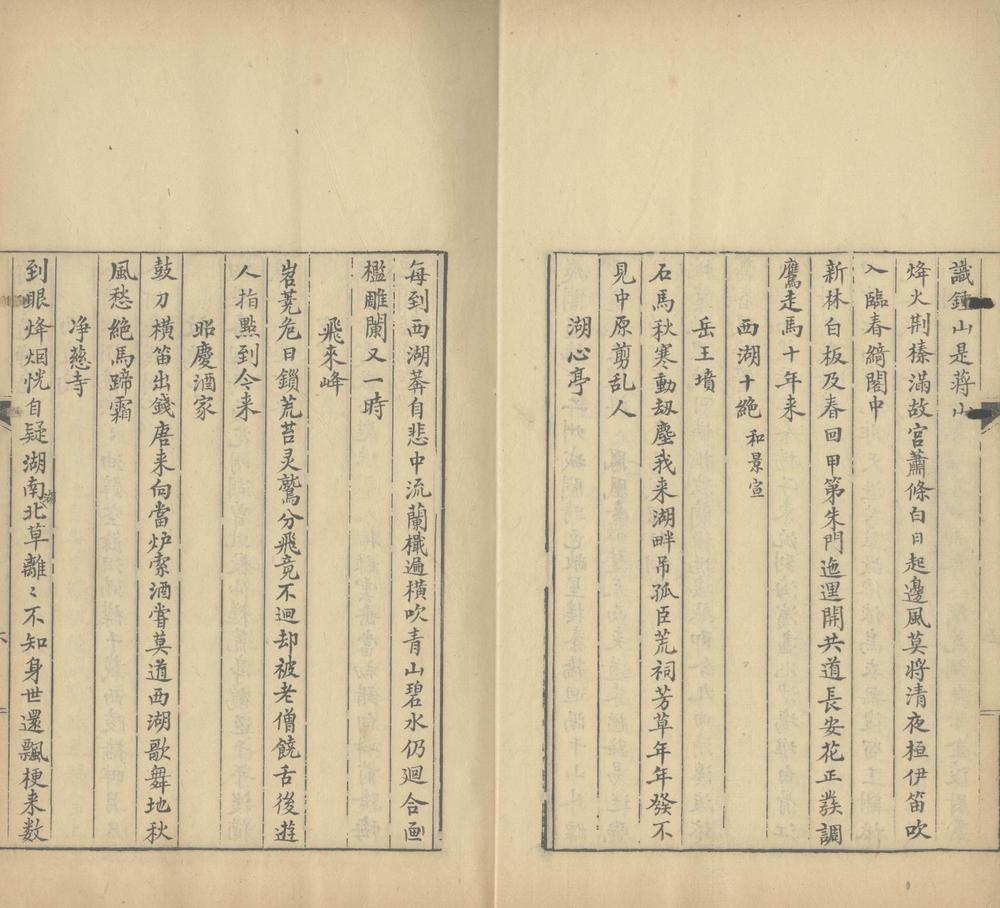 識鍾山是蔣山
烽火荆榛滿故宮蕭條白日起邊風莫將清夜桓伊笛吹
入臨春綺閣中
新林白板及春回甲第朱門迤邐開共道長安花正發調
鷹走馬十年来
西湖十絶 和景宣
岳王墳
石馬秋寒動刼塵我来湖畔吊孤臣荒祠芳草年年發不
見中原剪乱人
湖心亭
每到西湖莽自悲中流蘭檝遍橫吹青山碧水仍廻合画
檻雕闌又一時
飛來峰
岧荛危日鎖荒苔灵鷲分飛竟不迴却被老僧饒舌後遊
人指點到今来
昭慶酒家
鼓刀橫笛出錢唐来向當炉索酒嘗莫道西湖歌舞地秋
風愁絶馬蹄霜
净慈寺
到眼烽烟恍自疑湖南湖北草離〻不知身世還飄梗来数